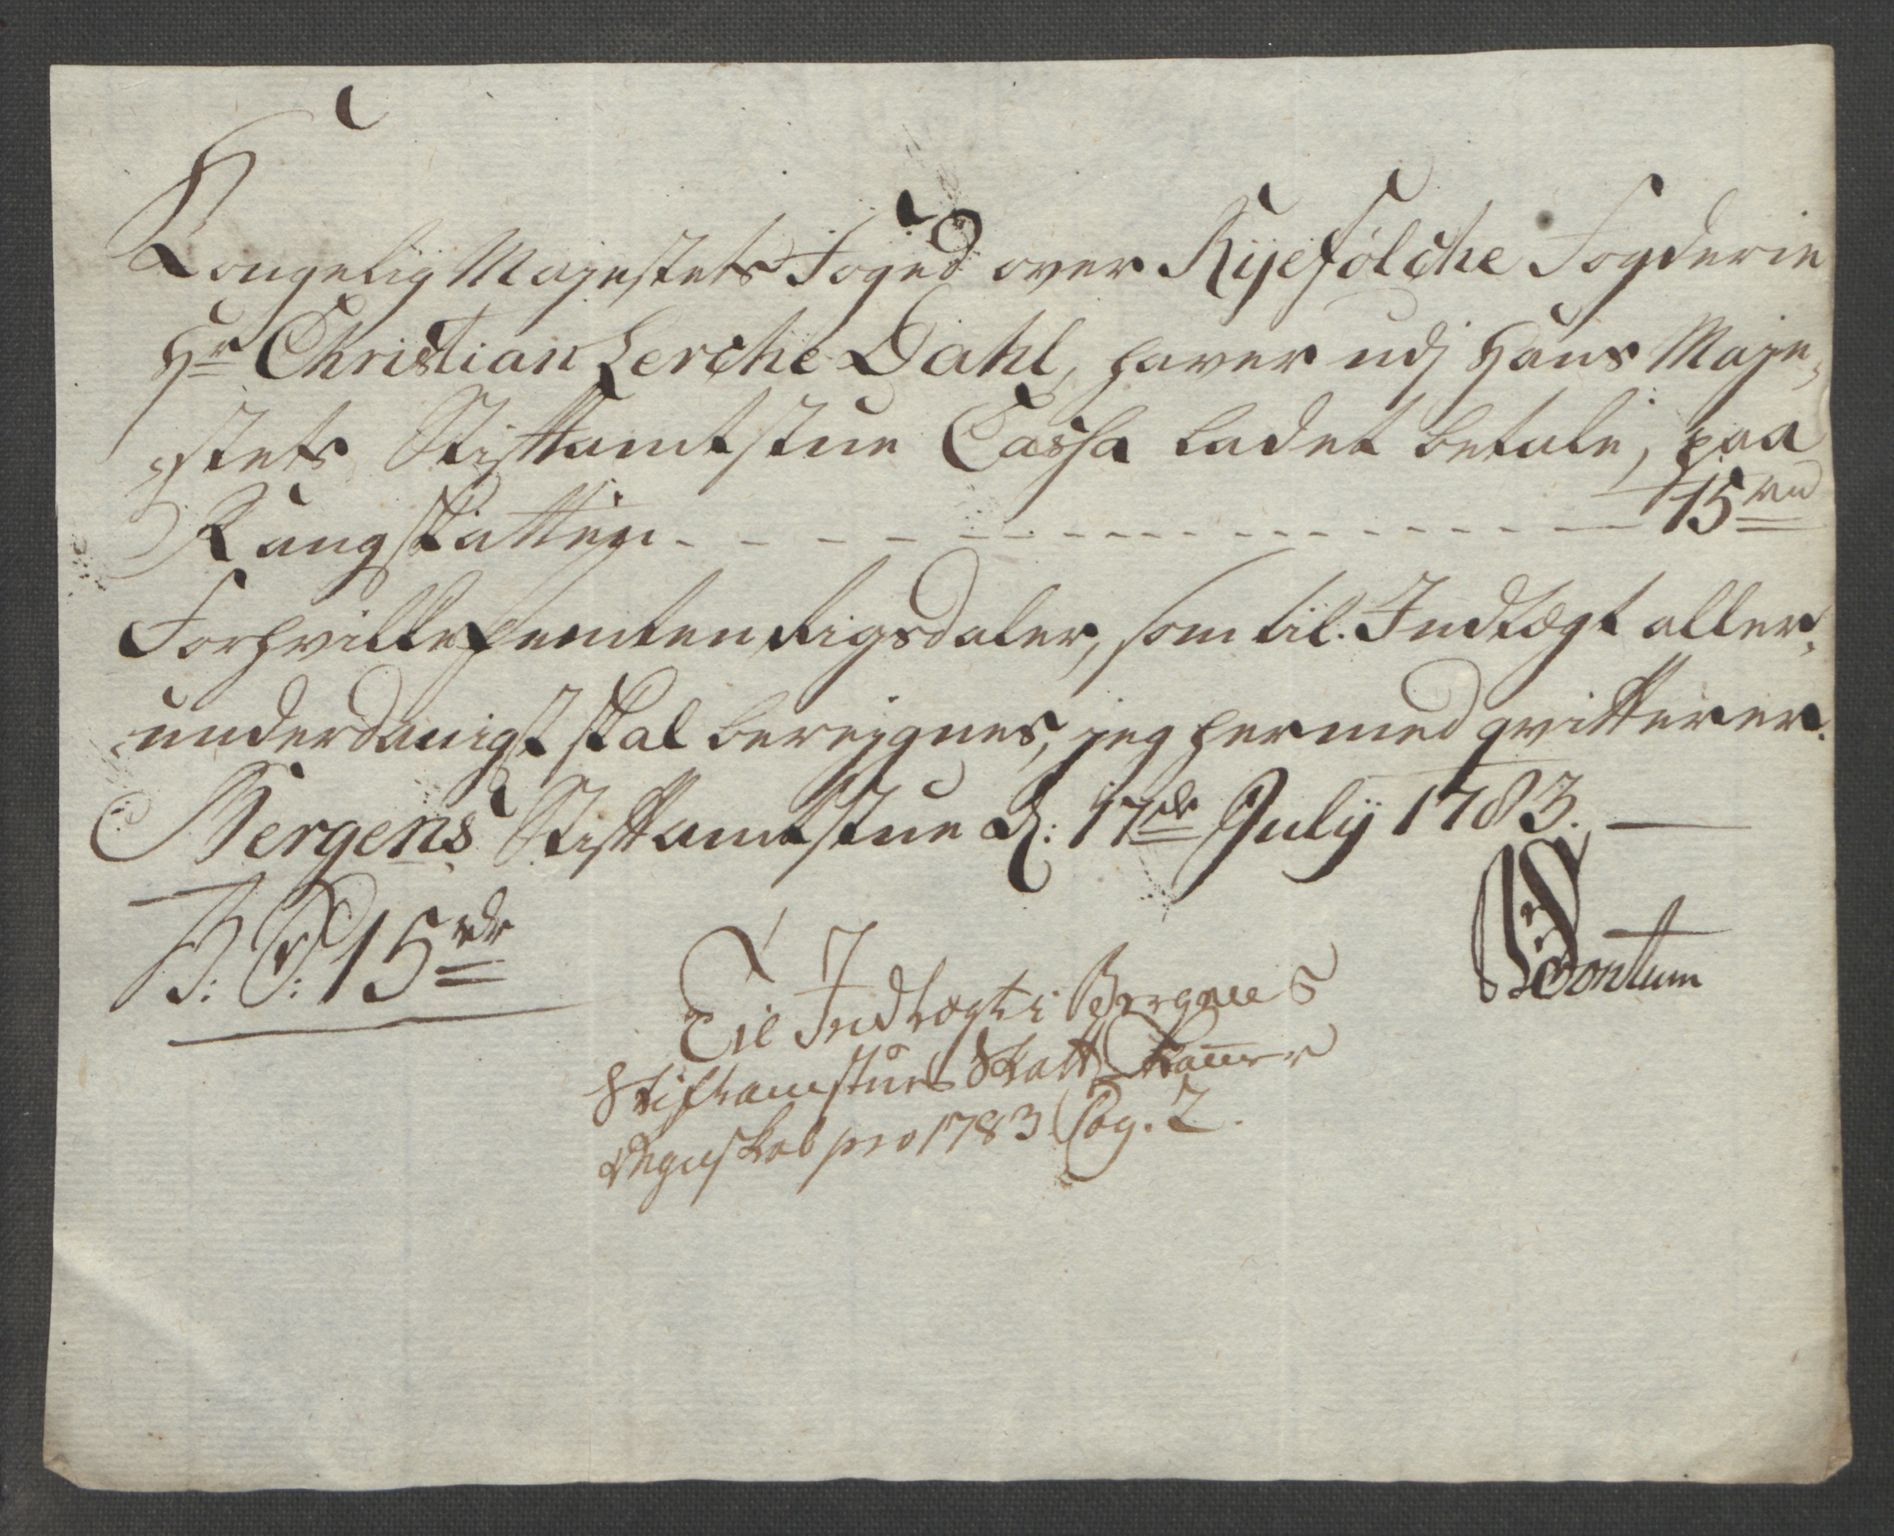 Kongelig Majestets Foged over Ryefølche Fogderie
Hr Christian Lerche Dahl, haver udj Hans Maje-
stets Stiftamtstue Cassa ladet betale, paa
Rangskatten - - - - - - - - - - - - - - - - 15 rd
Forhvilke femten Rigsdaler, som til Indtægt aller-
underdanigst skal bereignes, jeg hermed qvitterer.
Bergens Stiftamtstue d: 17de Julij 1783.
15 rdr
Til Indtægt i Bergens
Stiftamstues Skatt Kammer
Regnskab pro 1783 Pag. 2.